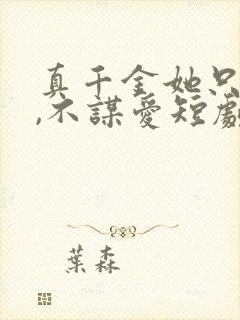 真千金她只
,不謀愛短劇
葉森